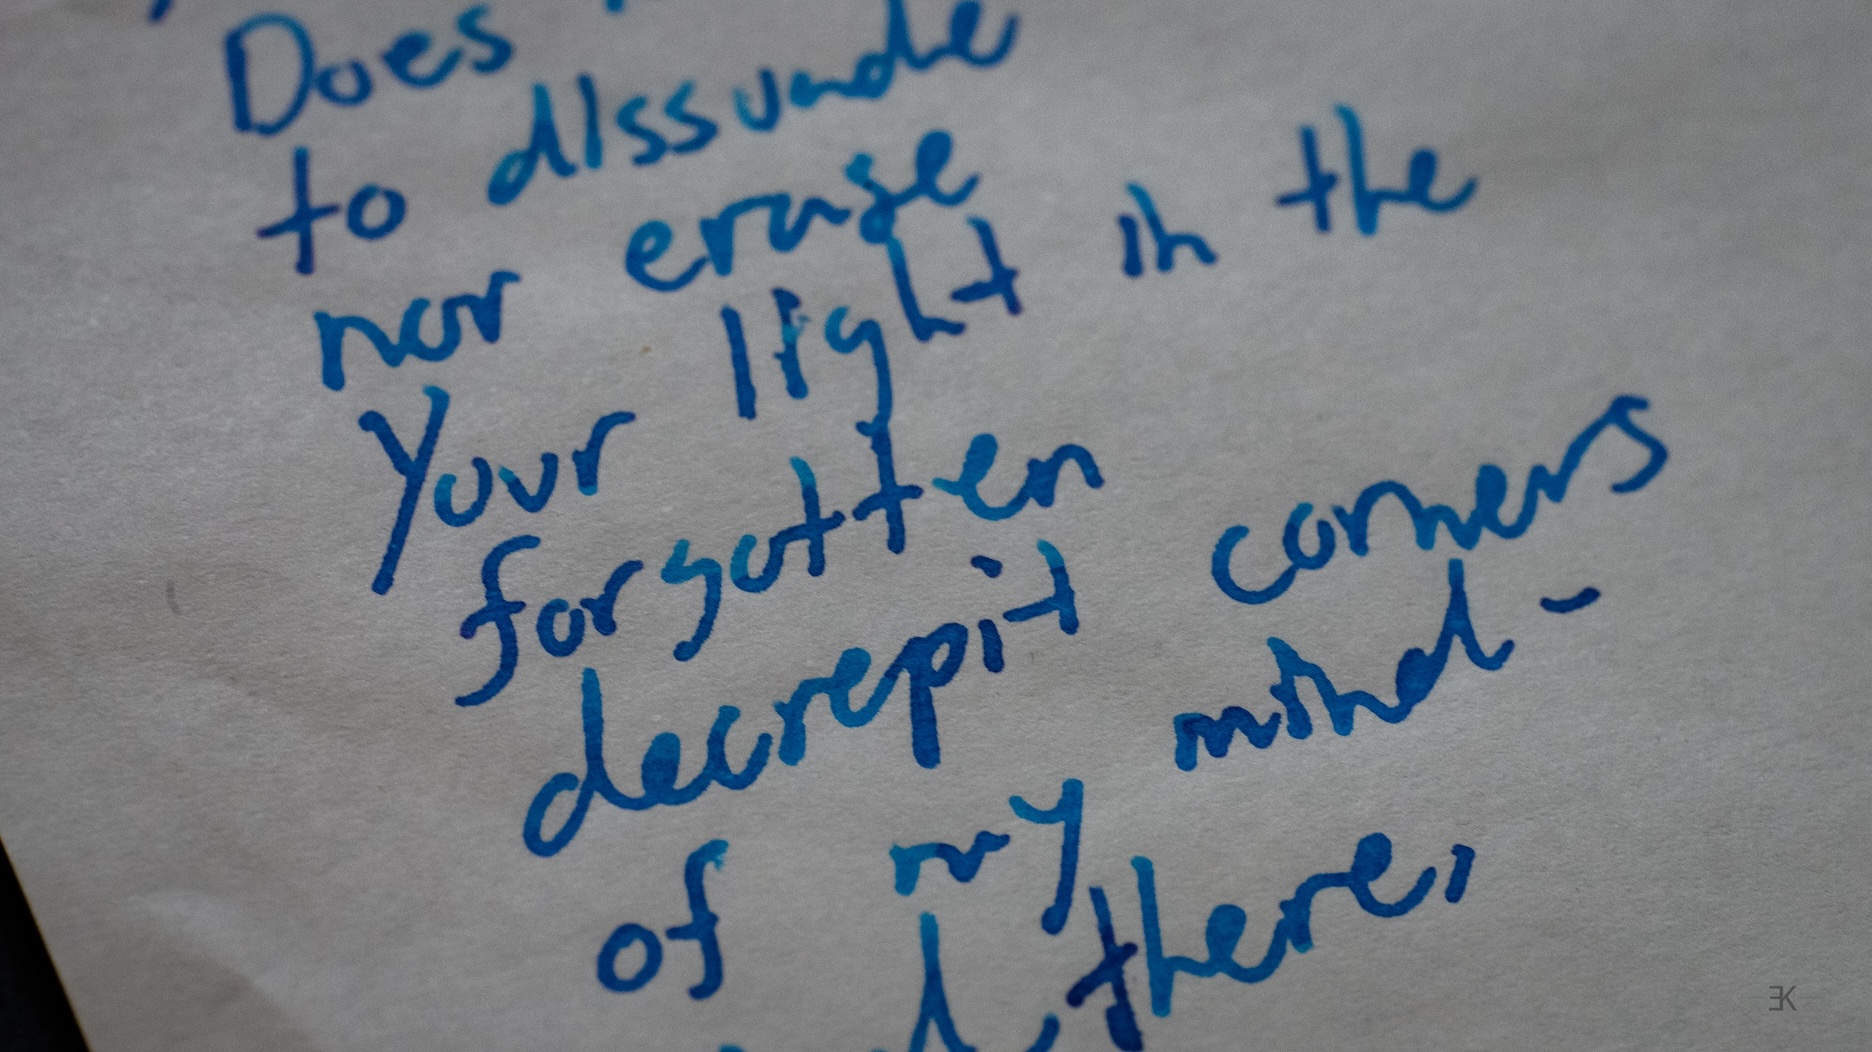 Does
to dissuade
nor erase
Your light in the
forgotten
decrepit corners
of my mind -
there,
ƎK